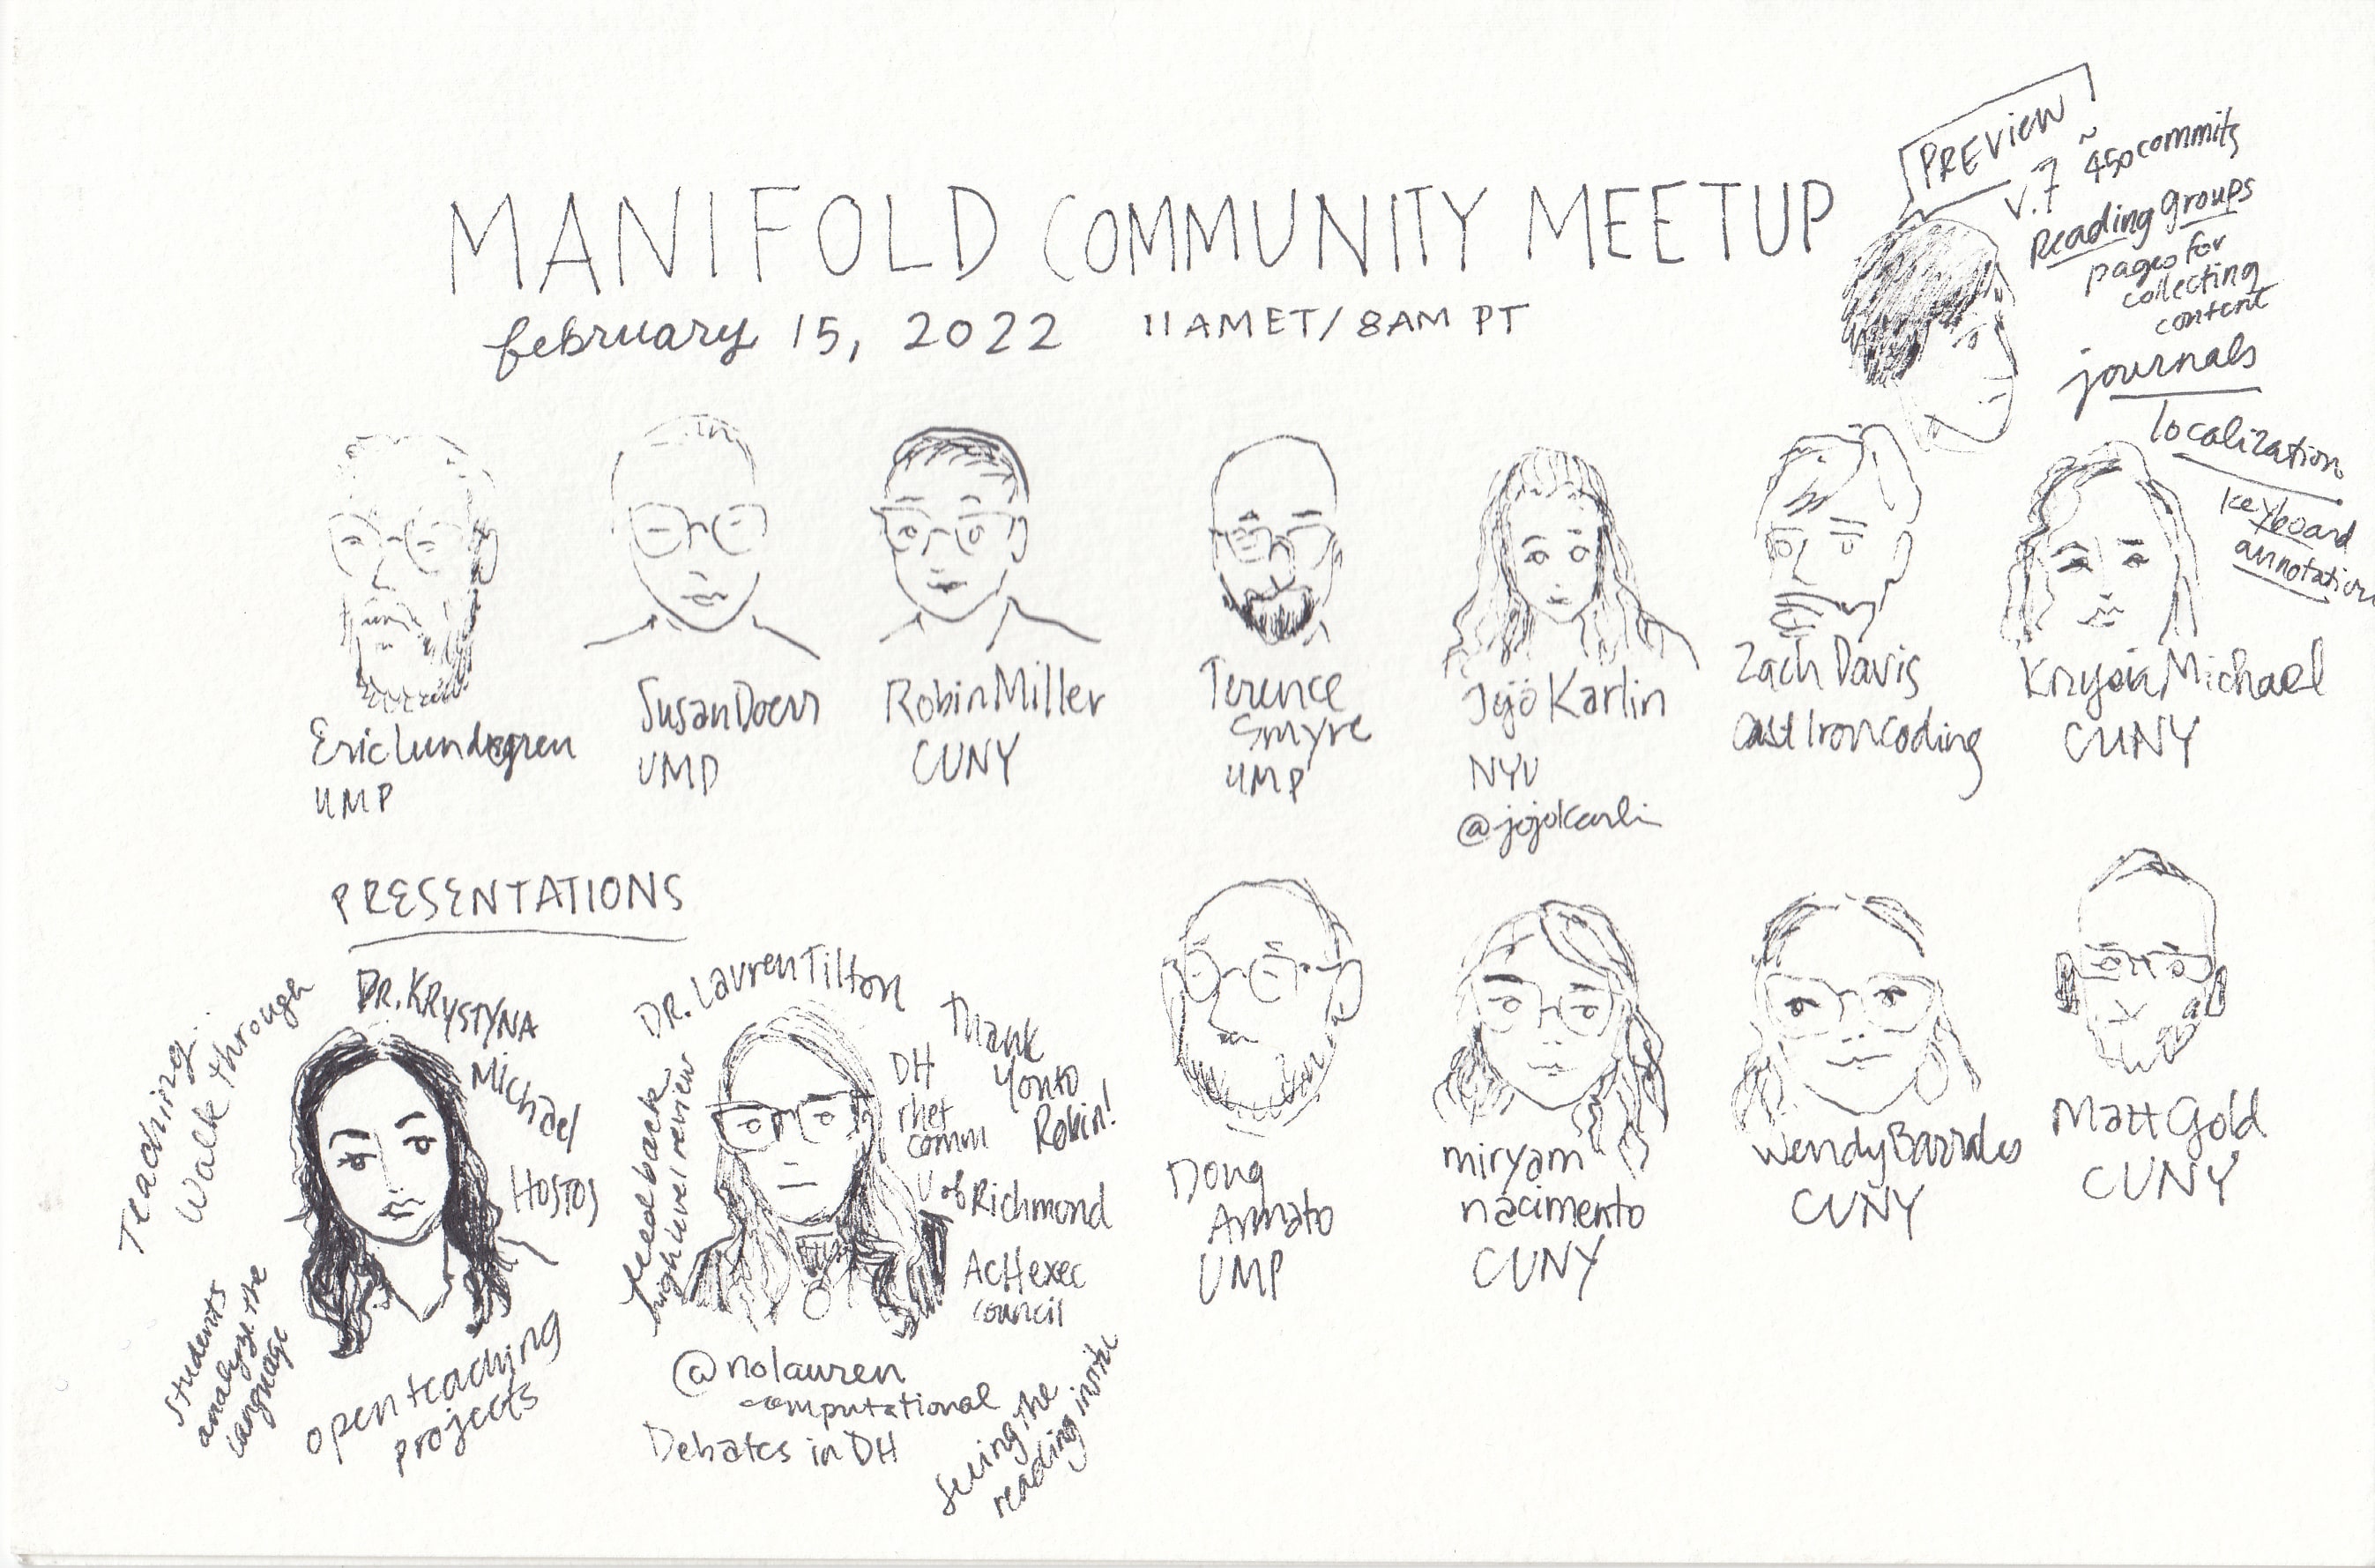 MANIFOLD COMMUNITY MEETUP
february 15, 2022 11AM ET/8AM PT
PREVIEW
v.7 ~ 450 commits
Reading groups
pages for
collecting
content
journals
localization
keyboard
annotation
Eric Lundgren
UMP
Susan Doerr
UMP
Robin Miller
CUNY
Terence
Smyre
UMP
Jojo Karlin
NYU
@jojokarlin
Zach Davis
Cast Iron Coding
Krysia Michael
CUNY
PRESENTATIONS
Teaching...
Walk through
DR. KRYSTYNA
Michael
Hostos
Students
analyze the
language
open teaching
projects
DR. Lauren Tilton
feedback
high level review
DH
rhet
comm
U of Richmond
ACH exec
council
Thank
you to
Robin!
@nolauren
computational
Debates in DH
Seeing the
reading
Doug
Armato
UMP
miryam
nacimento
CUNY
Wendy Barrales
CUNY
Matt Gold
CUNY